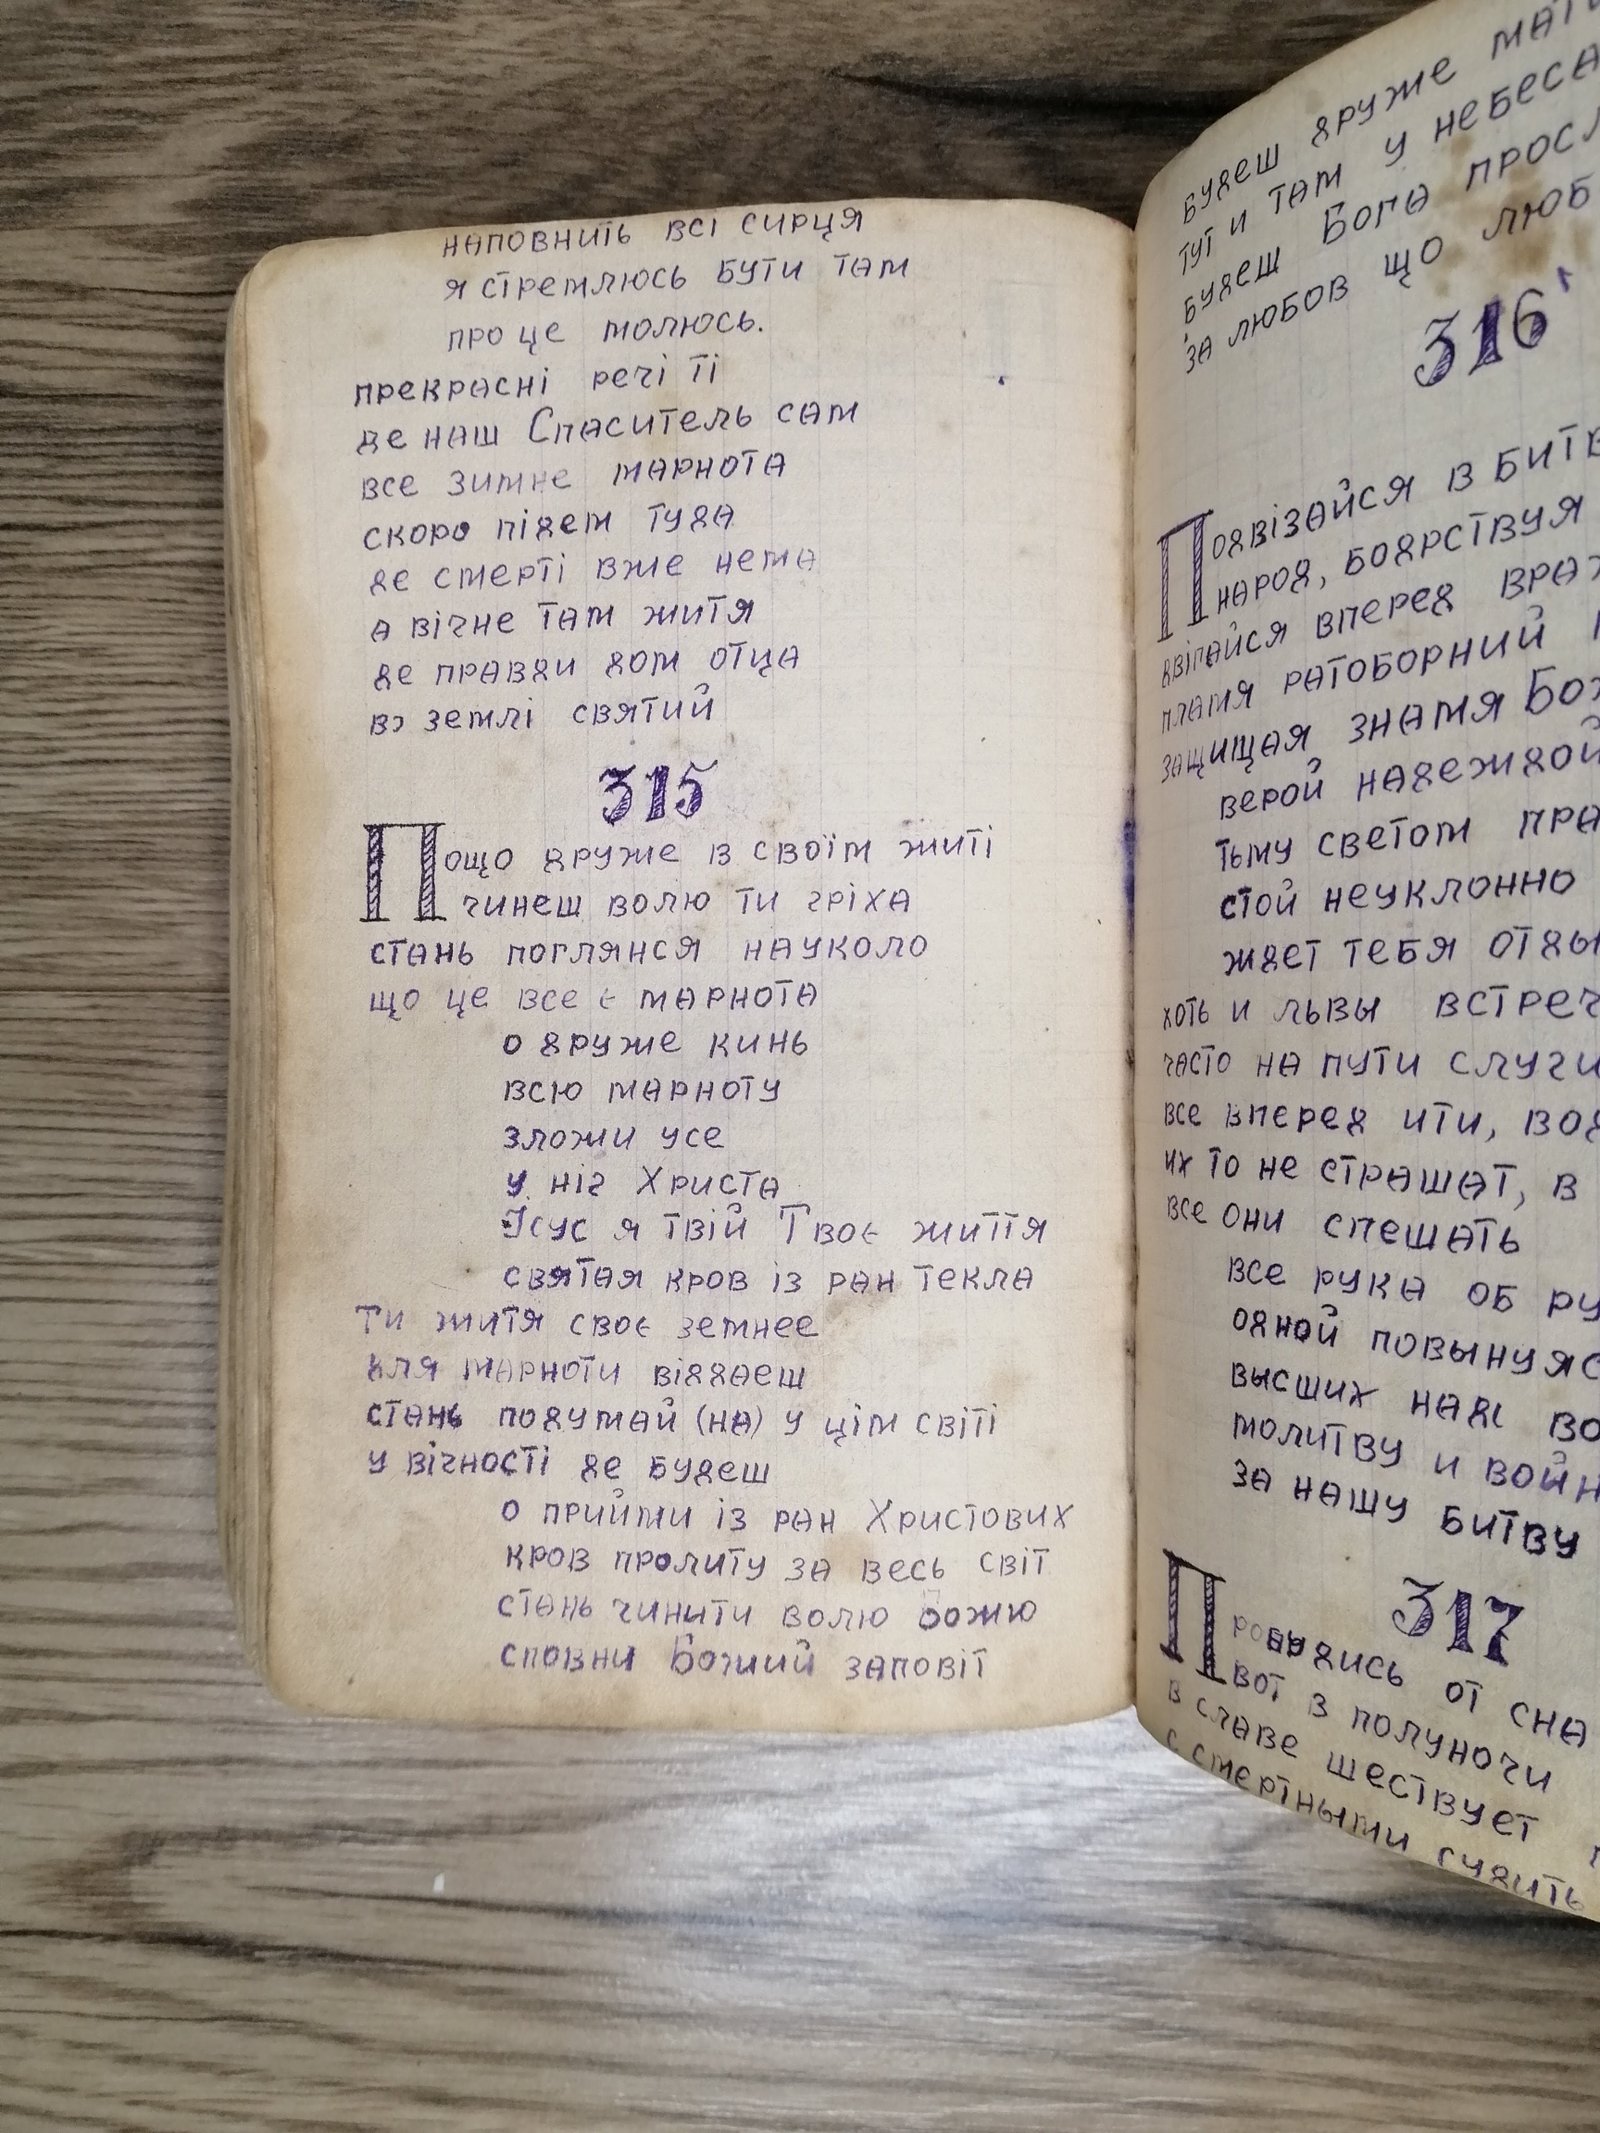 наповнить всі сирця
я стремлюсь бути там
про це молюсь.
прекрасні речі ті
де наш Спаситель сам
все зимне марнота
скоро підем туда
де смерті вже нема
а вічне там життя
де правди дом отца
в землі святий
315
Пощо друже в своїм житі
чинеш волю ти гріха
стань поглянся науколо
що це все є марнота
о друже кинь
всю марноту
зложи усе
у ніг Христа
Ісус я твій Твоє життя
святая кров із ран текла
Ти життя своє земнее
для марноти віддаєш
стань подумай (на) у цім світі
у вічності де будеш
о прийми із ран Христових
кров пролиту за весь світ
стань чинити волю Божю
сповни Божий заповіт
будеш друже мати
тут и там у небеса
будеш Бога просл
за любов що люб
316
Подвізайся в битв
народ, бодрствуя
двігайся вперед враж
пламя ратоборний
защищая знамя Бож
верой надеждой
тьму светом пра
стой неуклонно
ждет тебя отды
хоть и львы встреч
часто на пути слуги
все вперед ити, вод
их то не страшат, в
все они спешать
все рука об ру
одной повынуяс
высших надс во
молитву и войн
за нашу битву
317
Пробудись от сна
вот в полуночи
в славе шествует
с смертными судить